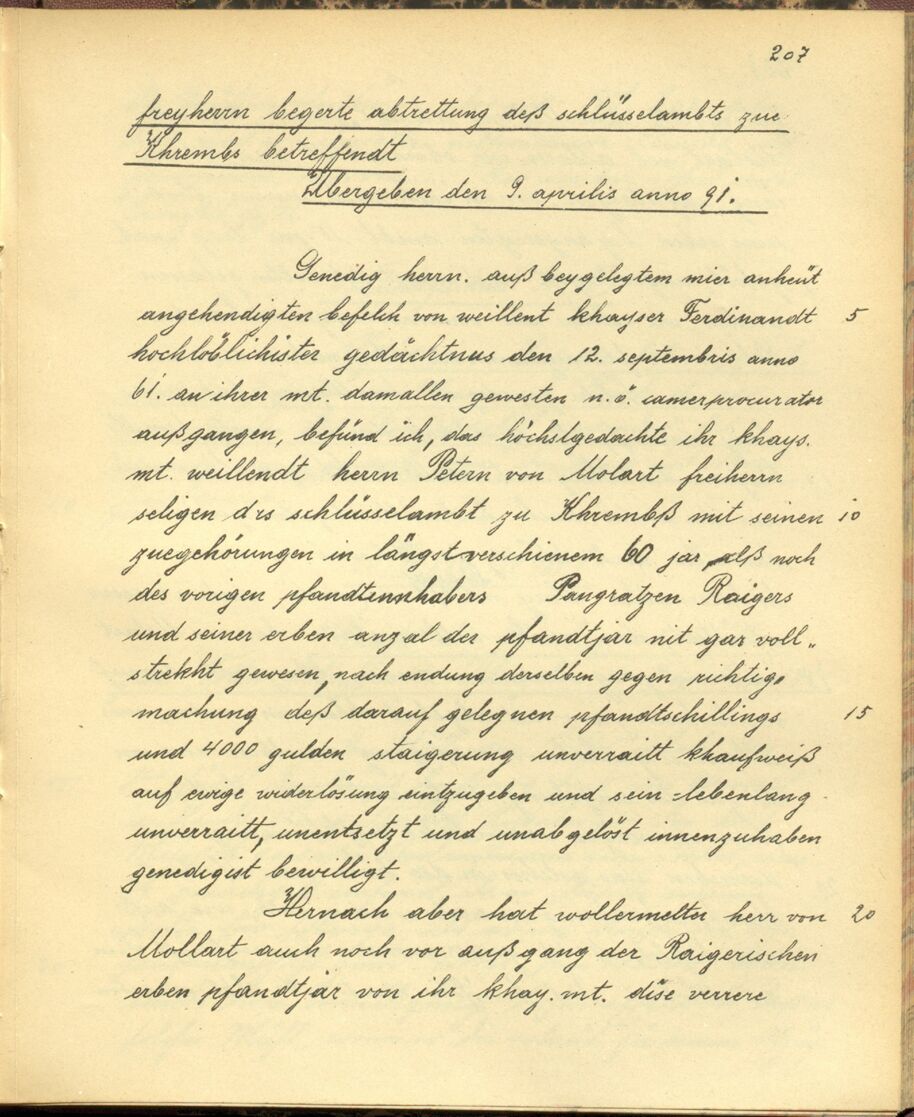 207
freyherrn begerte abtrettung deß schlüsselambts zue
Khrembs betreffendt
Übergeben den 9. aprilis anno 91.
Genedig herrn. auß beygelegtem mier anheüt
angehendigten befelch von weillent khayser Ferdinandt 5
hochlöblichister gedächtnus den 12. septembris anno
61. an ihrer mt. damallen gewesten n.ö. camerprocurator
außgangen, befünd ich, das höchstgedachte ihr khays.
mt. weillendt herrn Petern von Molart freiherrn
seligen das schlüsselambt zu Khrembß mit seinen 10
zuegehörungen in längst verschienem 60 jar, alß noch
des vorigen pfandtinnhabers Pangratzen Raigers
und seiner erben anzal der pfandtjar nit gar voll„
strekht gewesen, nach endung derselben gegen richtig„
machung deß darauf gelegnen pfandtschillings 15
und 4000 gulden staigerung unverraitt khaufweiß
auf ewige widerlösung eintzugeben und sein lebenlang
unverraitt, unentsetzt und unabgelöst innenzuhaben
genedigist bewilligt.
Hernach aber hat wollermelter herr von 20
Mollart auch noch vor außgang der Raigerischen
erben pfandtjar von ihr khay. mt. dise verrere